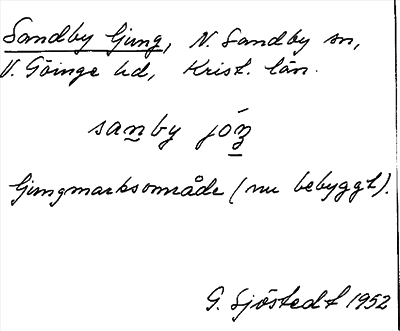 Sandby ljung, N. Sandby sn,
V. Göinge hd, Krist. län.
sanby jóŋ
ljungmarksområde (nu bebyggt).
G. Sjöstedt 1952